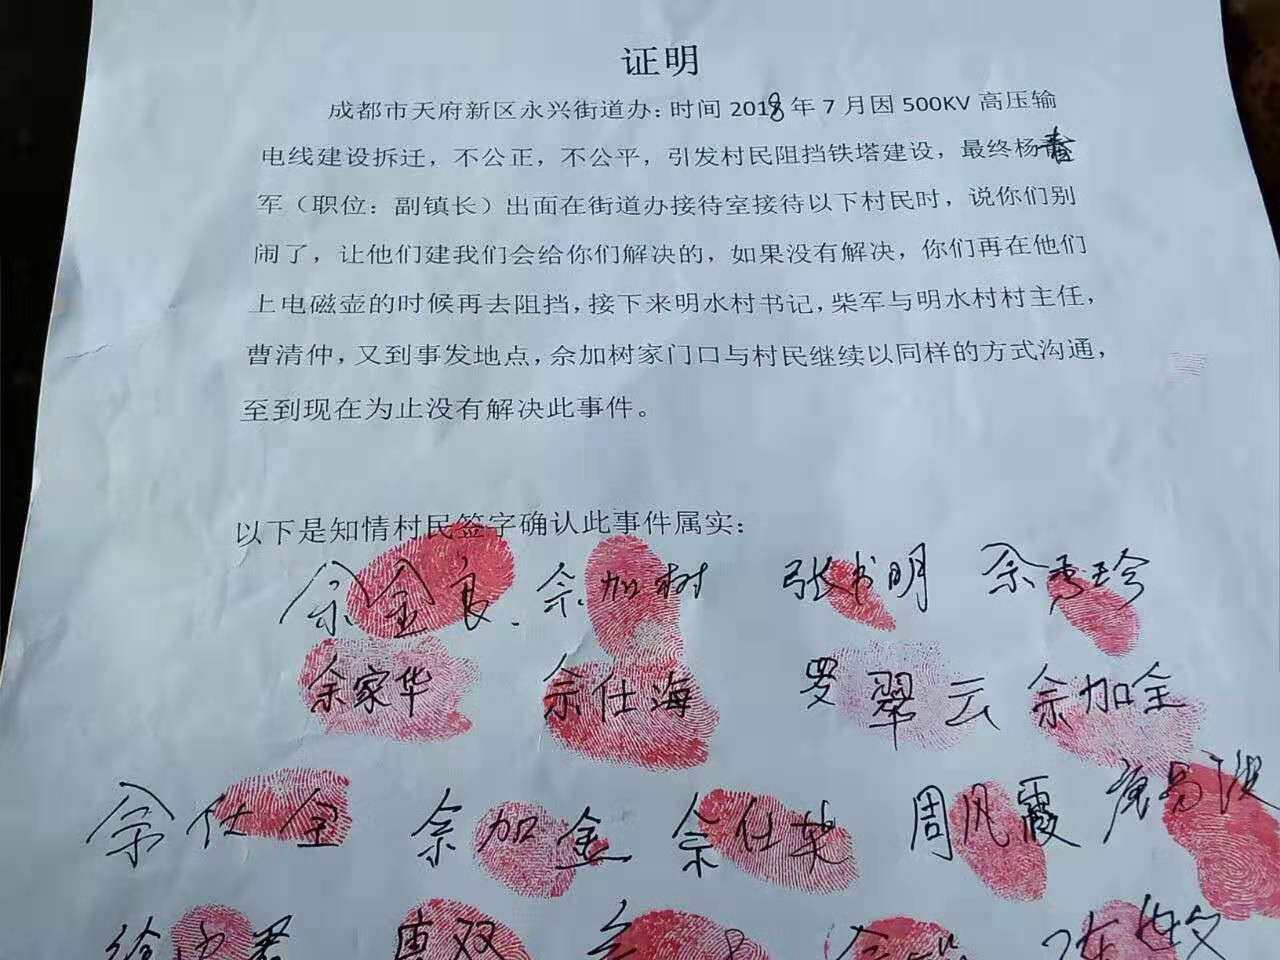 证明
成都市天府新区永兴街道办：时间2018年7月因500KV高压输
电线建设拆迁，不公正，不公平，引发村民阻挡铁塔建设，最终杨
军（职位：副镇长）出面在街道办接待室接待以下村民时，说你们别
闹了，让他们建我们会给你们解决的，如果没有解决，你们再在他们
上电磁壶的时候再去阻挡，接下来明水村书记，柴军与明水村村主任，
曹清仲，又到事发地点，余加树家门口与村民继续以同样的方式沟通，
至到现在为止没有解决此事件。
以下是知情村民签字确认此事件属实：
余金良 余加树 张书明 余秀珍
余家华 余仕海 罗翠云 余加全
余仕全 余加金 余仕 周凤霞
双